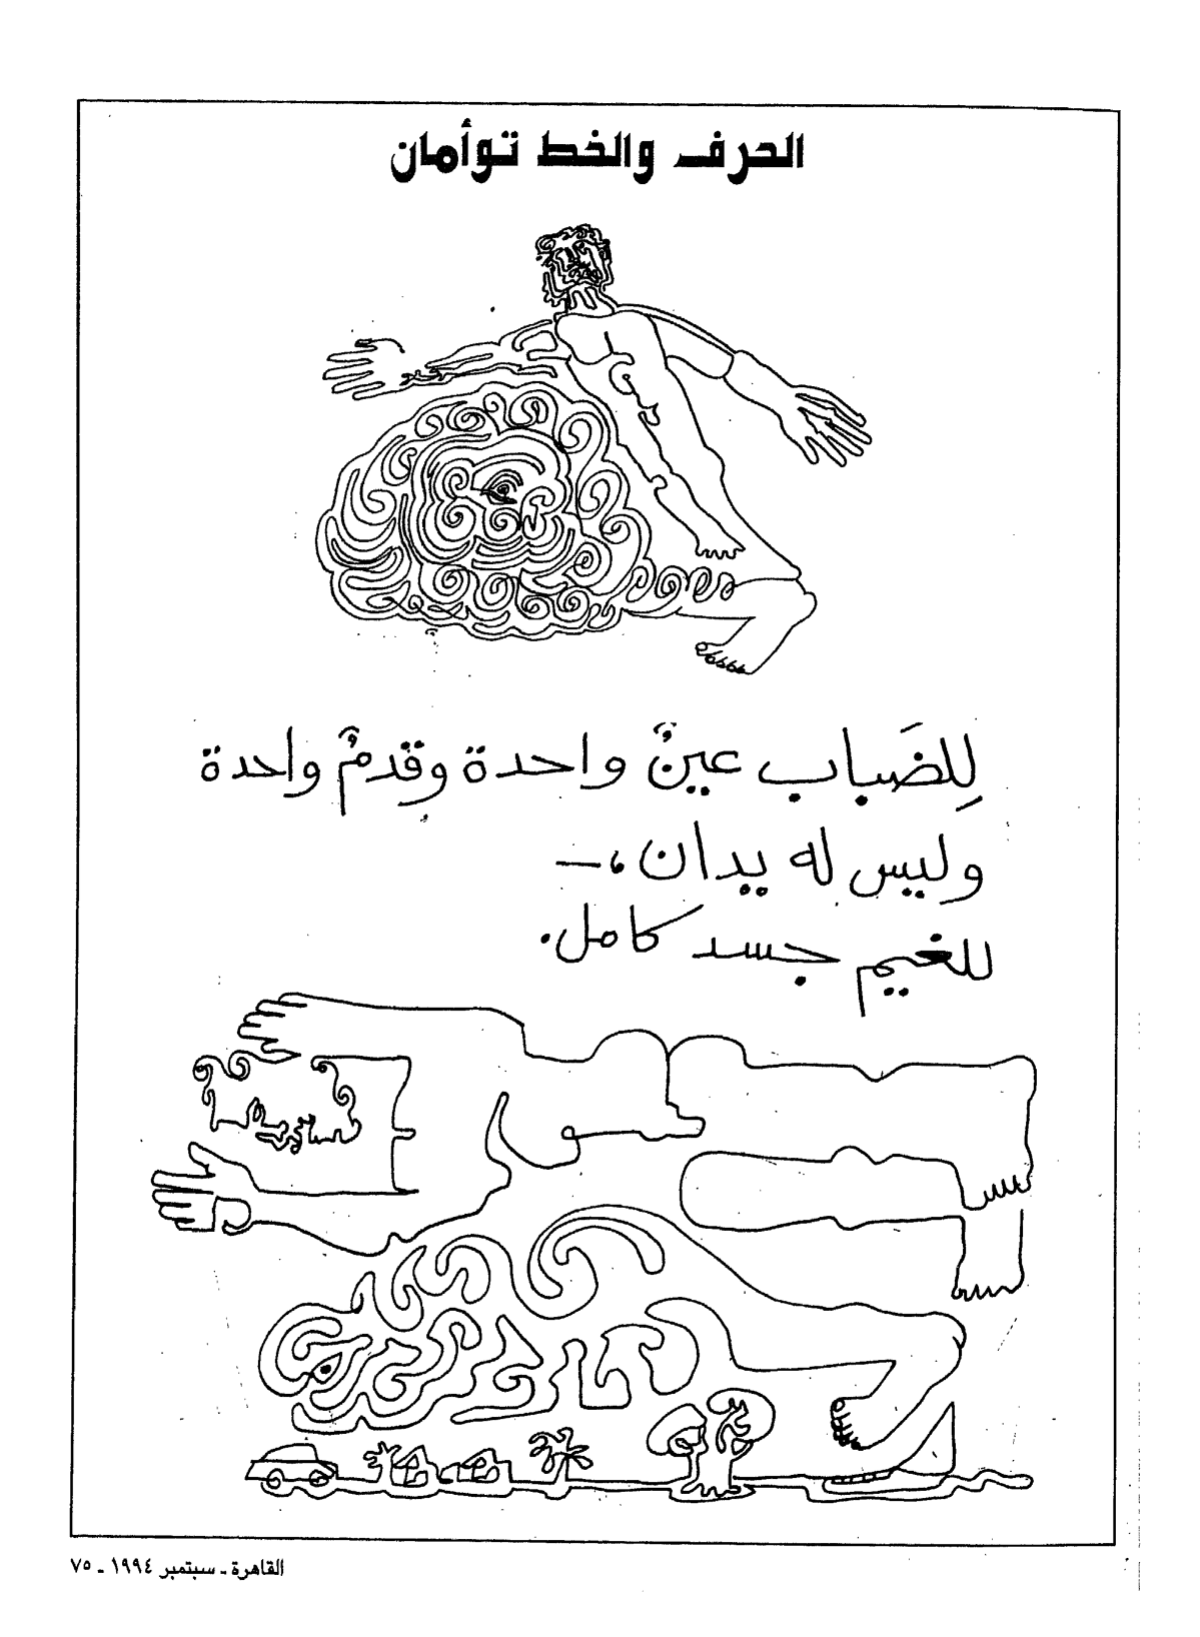 الحرف والخط توأمان
لِلضَباب عينٌ واحدة وقدمٌ واحدة
وليس له يدان ،ـ
للغيم جسد كامل.
القاهرة ـ سبتمبر ١٩٩٤ ـ ٧٥